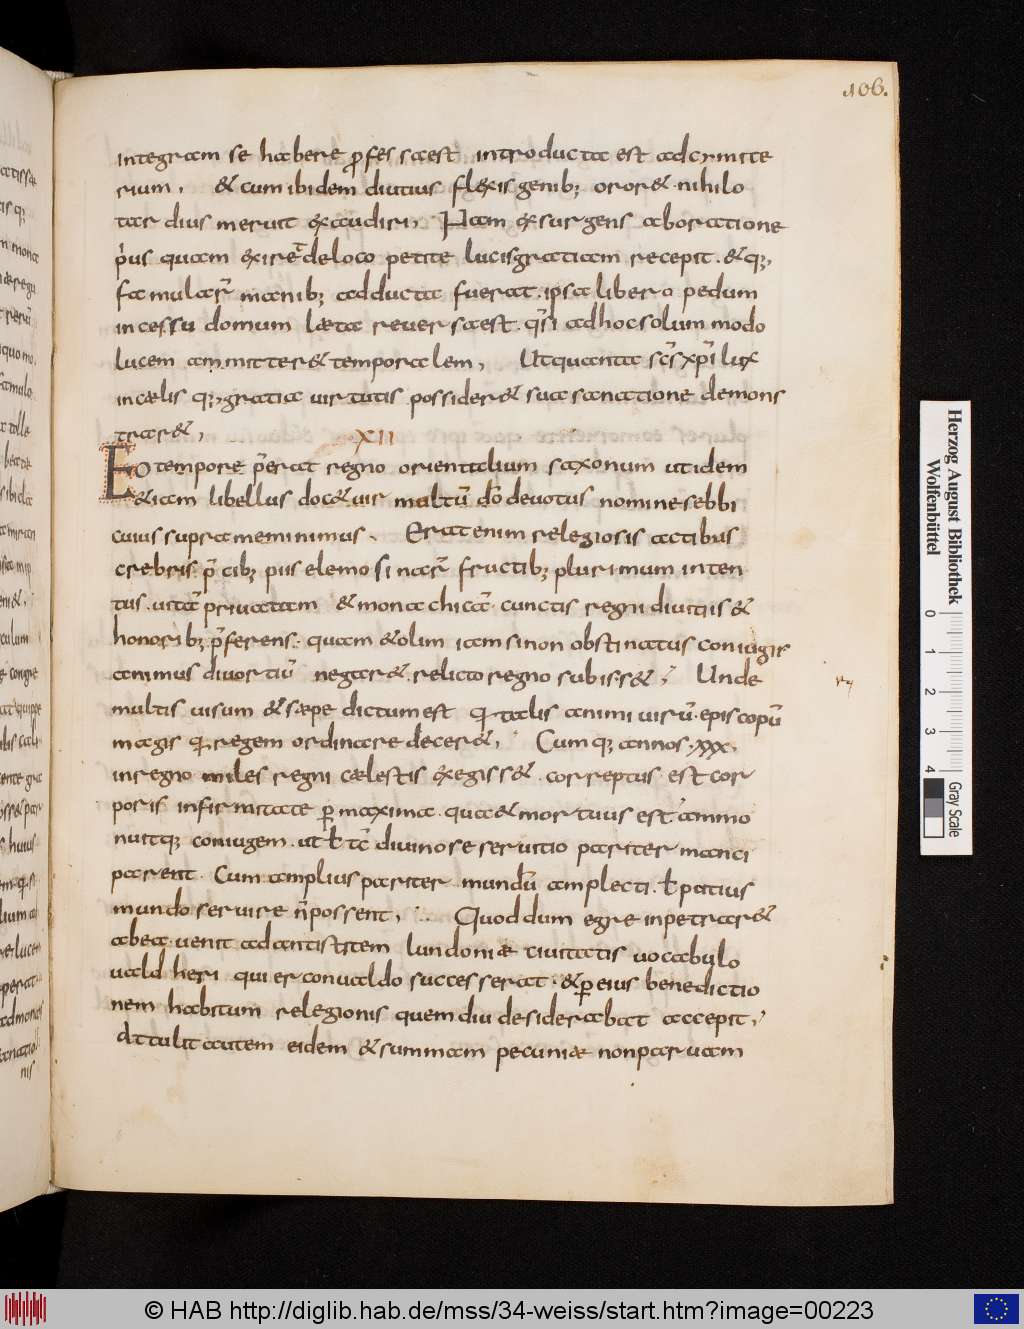 106.
integram se habere p̱fessa est introducta est adcymite
rium, & cum ibidem diutius flexis genib; orar& nihilo
tardius meruit exaudiri, Nam exsurgens aboratione
p̓us quam exir&deloco petite lucisgratiam recepit. & q;
famular̄ manib; adducta fuerat. ipsa libero pedum
incessu domum læta reuersa est. q̓si adhocsolummodo
lucem ammitter& temporalem, Ut quanta sc̄s xp̄i lux
incælis q;, gratia uirtutis possider& sua sanatione demons
trar&,
XII
Eo tempore p̄erat regno orientalium saxonum ut idem
&iam libellus doc& uir multū dō deuotus nomine sebbi
cuius supra meminimus. Erat enim relegiosis actibus
crebris p̄cib; piis elemosinar̄ fructib; plurimum inten
tus. uitā priuatam & monachicā cunctis regni diuitiis &
honorib; p̄ferens. quam &olim iam si non obstinatus coniugis
animus diuortiū negar& relicto regno subiss&, Unde
multis uisum & sæpe dictum est q̄ talis animi uirū episcopū
magis q̄ regem ordinare decer&, Cumq; annos xxx,
inregno miles regni cælestis exegiss&. correptus est cor
poris infirmitate p̱maxima. qua & mortuus est ammo
nuitq; coniugem. ut ł tc̄ diuino se seruitio pariter manci
parent. Cum amplius pariter mundū amplecti. ł potius
mundo seruire n̄ possent, Quod dum egre inpetrar&
abea. uenit ad antistitem lundoniæ ciuitatis uocabulo
uald heri qui erconualdo successerat. & p̱ eius benedictio
nem habitum relegionis quem diu desiderabat accepit,
Attulit autem eidem & summam pecuniæ non paruam
Herzog August Bibliothek
Wolfenbüttel
0 1 2 3 4
Gray Scale
© HAB http://diglib.hab.de/mss/34-weiss/start.htm?image=00223